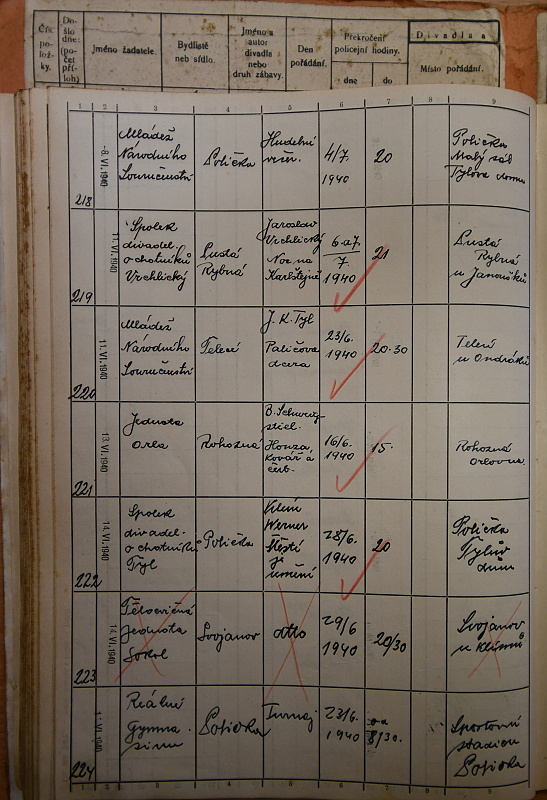 Čís.
po-
ložky.
Do-
šlo
dne:
(po-
čet
pří-
loh)
Jméno žadatele.
Bydliště
neb sídlo.
Jméno a
autor
divadla
nebo
druh zábavy.
Den
pořádání.
Překročení
policejní hodiny.
dne
do
Divadla a
Místo pořádání.
1 2 3 4 5 6 7 8 9
218
-8. VI. 1940
Mládež
Národního
Souručenství
Polička
Hudební
4/7.
1940
20
Polička
Malý sál
Tylova domu
219
11. VI. 1940
Spolek
divadel.
ochotníků
Vrchlický
Pustá
Rybná
Jaroslav
Vrchlický
Noc na
Karlštejně
6 a 7.
7.
1940
21
Pustá
Rybná
u Janoušků
220
11. VI. 1940
Mládež
Národního
Souručenství
Telecí
J. K. Tyl
Paličova
dcera
23/6.
1940
20·30
Telecí
u Ondráků
221
13. VI. 1940
Jednota
Orla
Rohozná
Honza,
kovář a
čert.
16/6.
1940
15·
Rohozná
Orlovna.
222
14. VI. 1940
Spolek
divadel.
ochotníků
Tyl
Polička
Werner
Štěstí
je
umění
28/6.
1940
20
Polička
Tylův
dům
223
14. VI. 1940
Tělocvičná
Jednota
Sokol
Svojanov
dtto
29/6
1940
20/30
Svojanov
u Klímů
224
Reálné
Gymna-
sium
Polička
Turnaj
23/6.
1940
od
8/30.
Sportovní
stadion
Polička